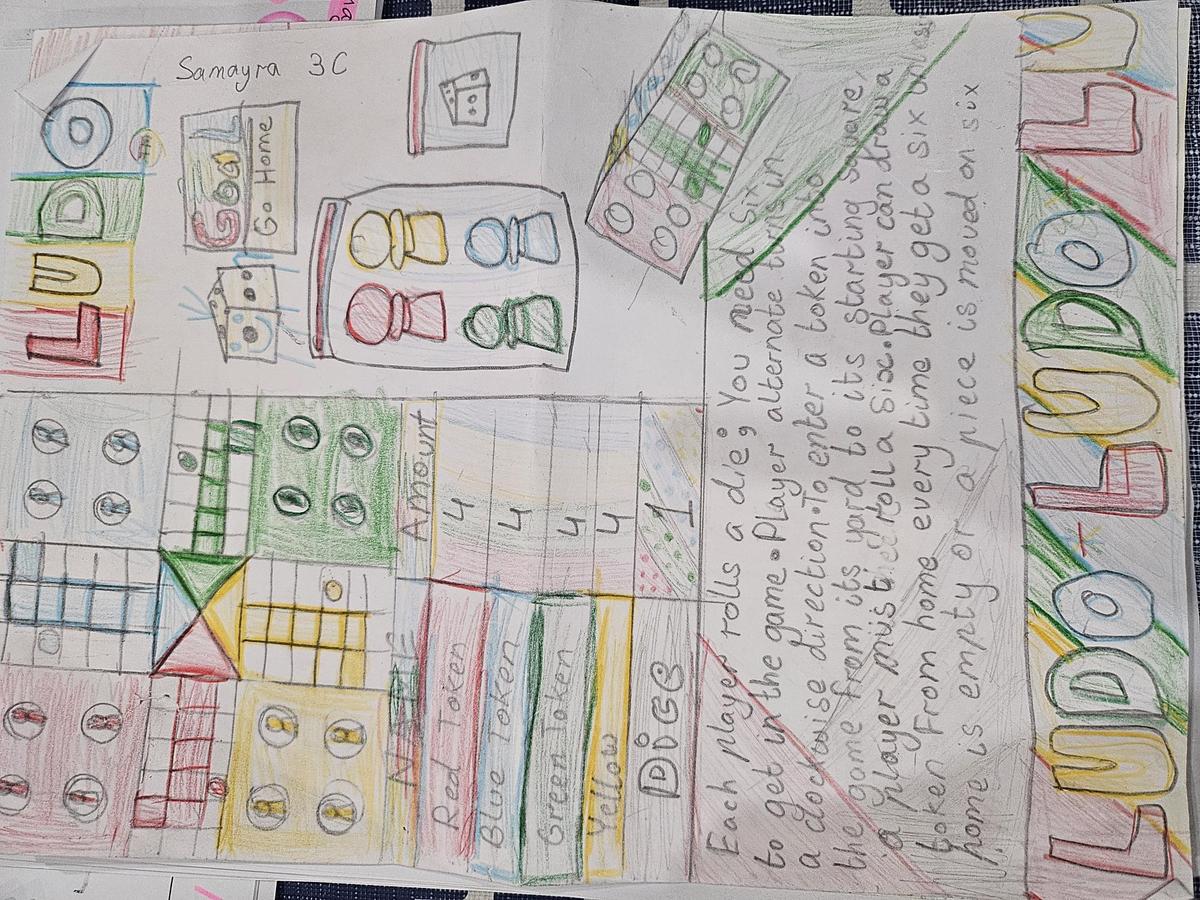 LUDO
TM
Samayra 3C
GOAL
Go Home
NAME Amount
Red Token 4
Blue Token 4
Green Token 4
Yellow 4
Dice 1
Each player rolls a die; You need Six
to get in the game. Player alternate turns in
a clockwise direction. To enter a token into
the game from its yard to its starting square,
a player must roll a Six. Player can draw a
token from home every time they get a six
home is empty or a piece is moved on six
LUDO - LUDO - LU